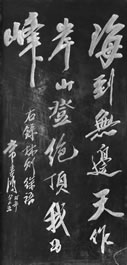 海到無邊天作
岸山登絕頂我為
峰
右錄林則徐語